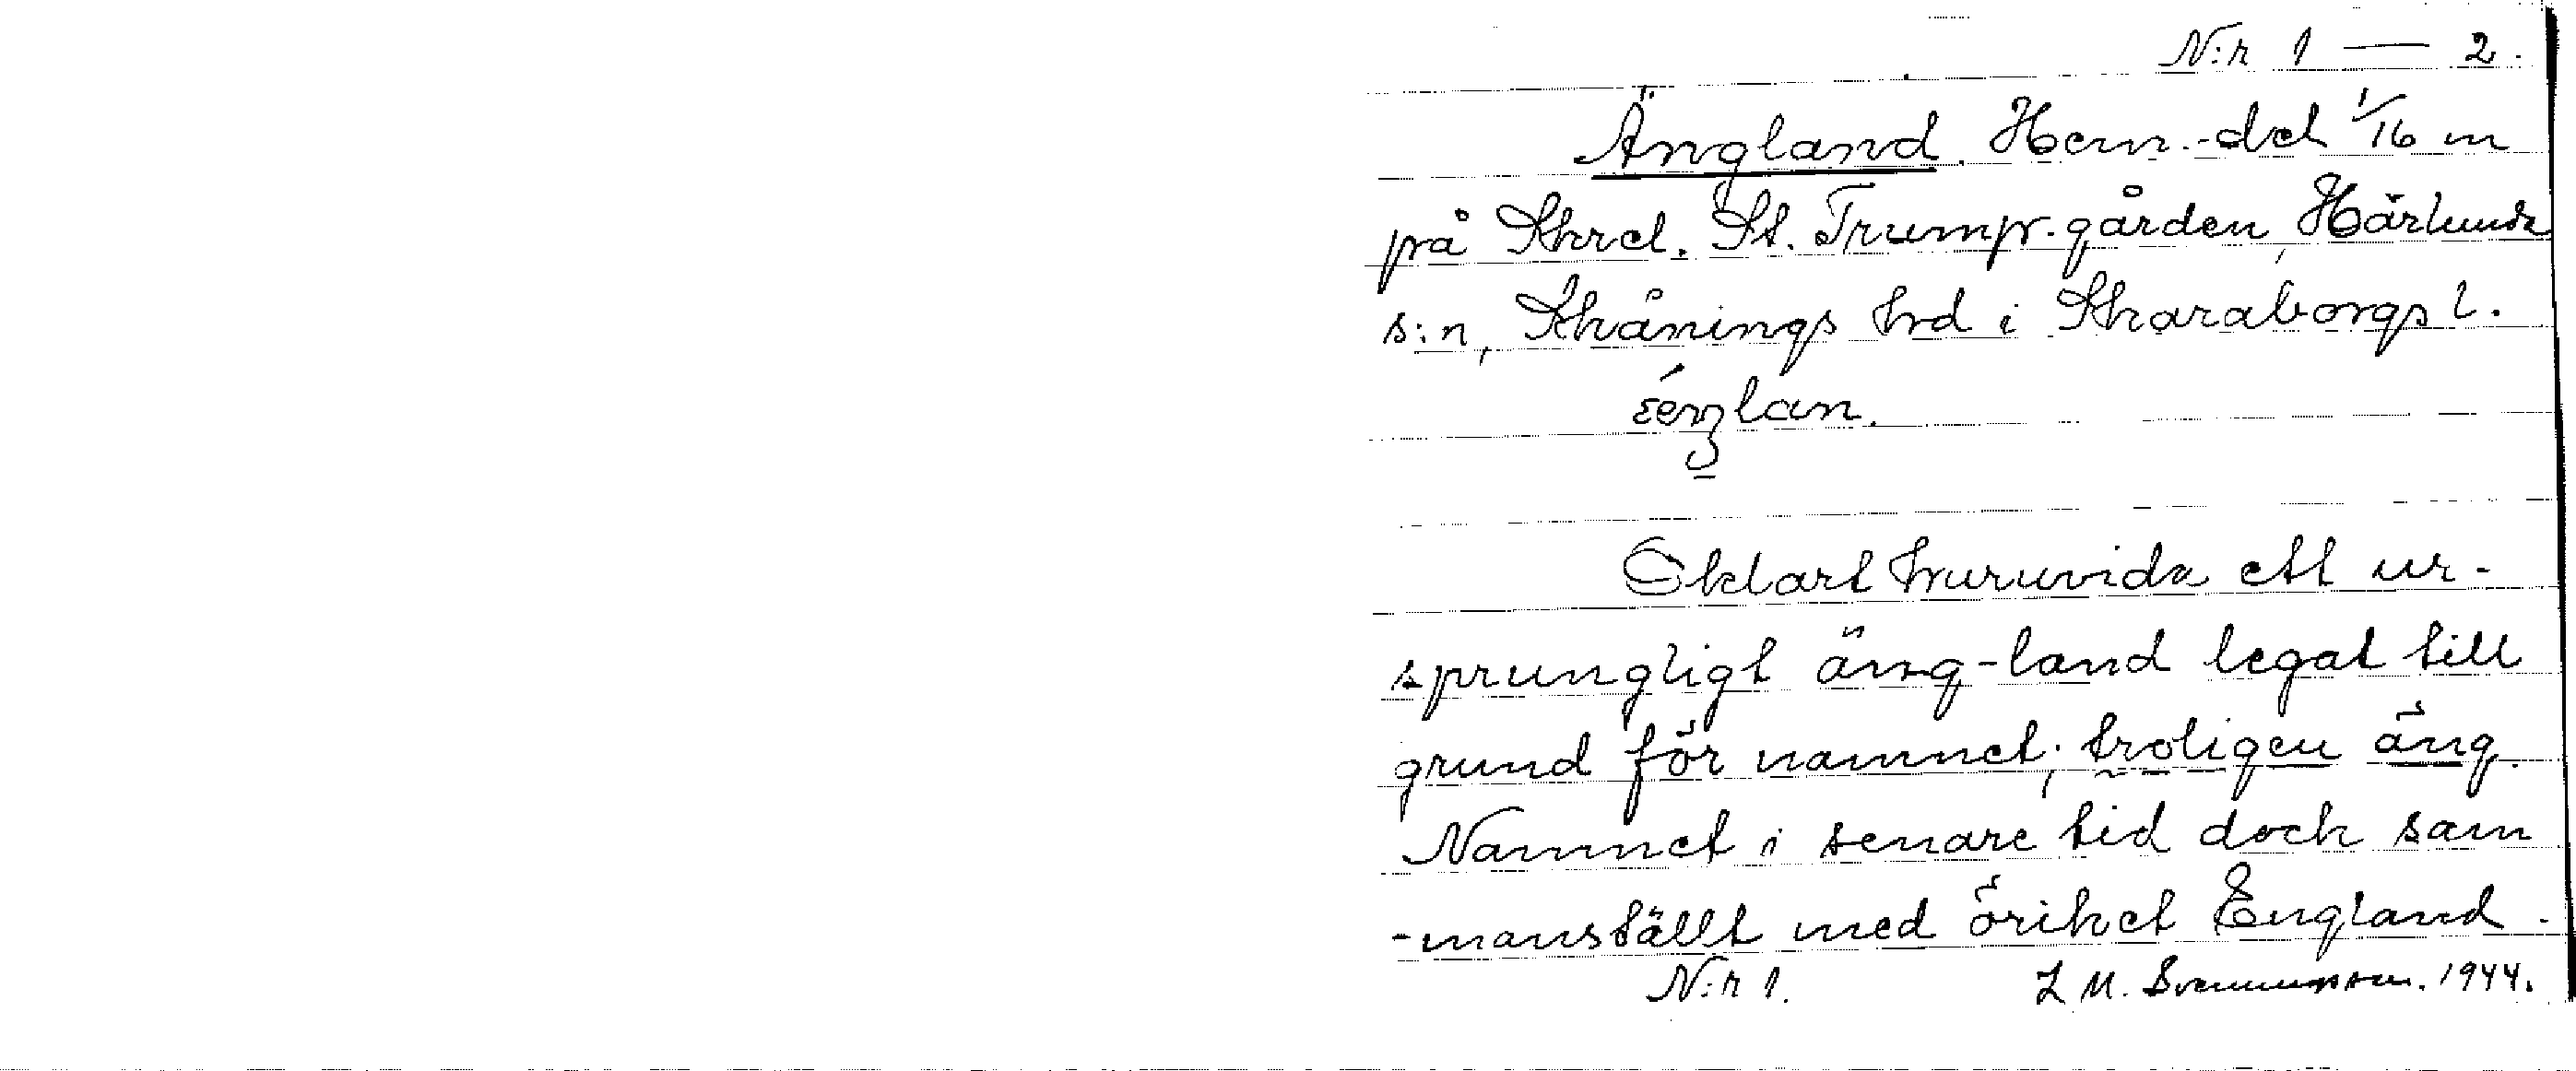 N:r 1 — 2.
Ängland. Hem.-del 1/16 m
på Skrd. St. Trump.gården, Härlunda
s:n, Skånings hd i Skaraborgs l.
Oklart huruvida ett ur-
sprungligt äng-land legat till
grund för namnet; troligen äng.
Namnet i senare tid dock sam
-manställt med öriket England.
N:r 1. L M. Svennungsson. 1944.